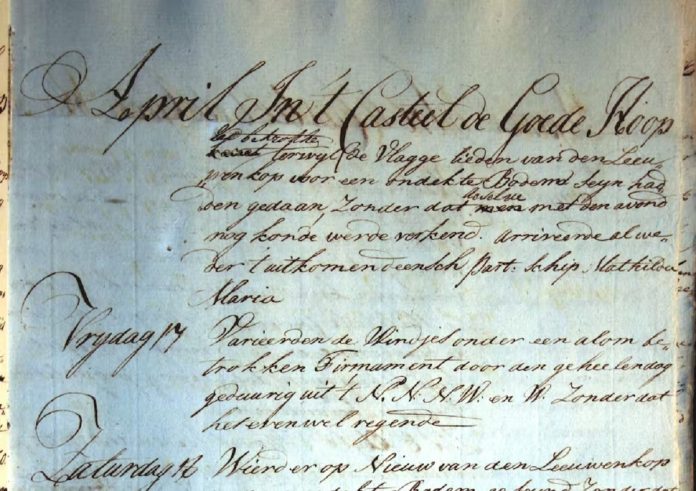 April In't Casteel de Goede Hoop
terwyl de Vlagge lieden van den Leeu-
wenkop voor een ondekte Bodem seyn had
den gedaan, Zonder dat deselve men met den avond
nog konde werde verkend. arriveerde al we-
der t uitkomend deensch part: schip, Mathilda
Maria
Vrydag 17 Varieerden de Windjes onder een alom be-
trokken Firmament door den geheelen dag
geduurig uit t N. N.N.W. en W. Zonder dat
het evenwel regende
Zaturdag 18 Wierd er op Nieuw van den Leeuwenkop
Bodem Zonder dat